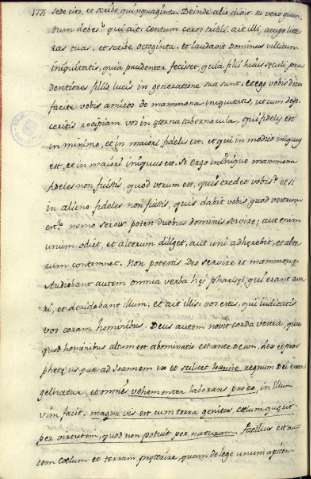 sede cito, et scribe quinquaginta. Deinde alii dixit, tu vero quan
tum debes? qui ait: centum coros tritici. ait illi, accipe litte
ras tuas, et scribe octoginta. et laudavit dominus villicum
iniquitatis, quia prudenter fecisset, quia filii huius seculi pru
dentiores filiis lucis in generatione sua sunt. et ego vobis dico
facite vobis amicos de mammona iniquitatis, ut cum defe
ceritis recipiant vos in eterna tabernacula. qui fidelis est
in minimo, et in maiori fidelis est, et qui in modico iniquus
est, et in maiori iniquus est. Si ergo in iniquo mammona
fideles non fuistis, quod verum est, quis credet vobis? et si
in alieno fideles non fuistis, quis dabit vobis quod vestrum
est? nemo servus potest duobus dominis servire; aut enim
unum odiet, et alterum diliget, aut uni adherebit, et alte
rum contemnet. Non potestis deo servire et mammone.
Audiebant autem omnia verba hec pharisei, qui erant ava
ri, et deridebant illum. et ait illis vos estis, qui iudicatis
vos coram hominibus. Deus autem novit corda vestra, quia
quod hominibus altum est abominatio est ante Deum. lex et pro
phete usque ad Joannem
regnum Dei evan
gelizatur, et omnes vehementer laborant pro eo, in illum
vim facit.
per naturam. facilius est au
tem coelum et terram preterire, quam de lege unum apicem